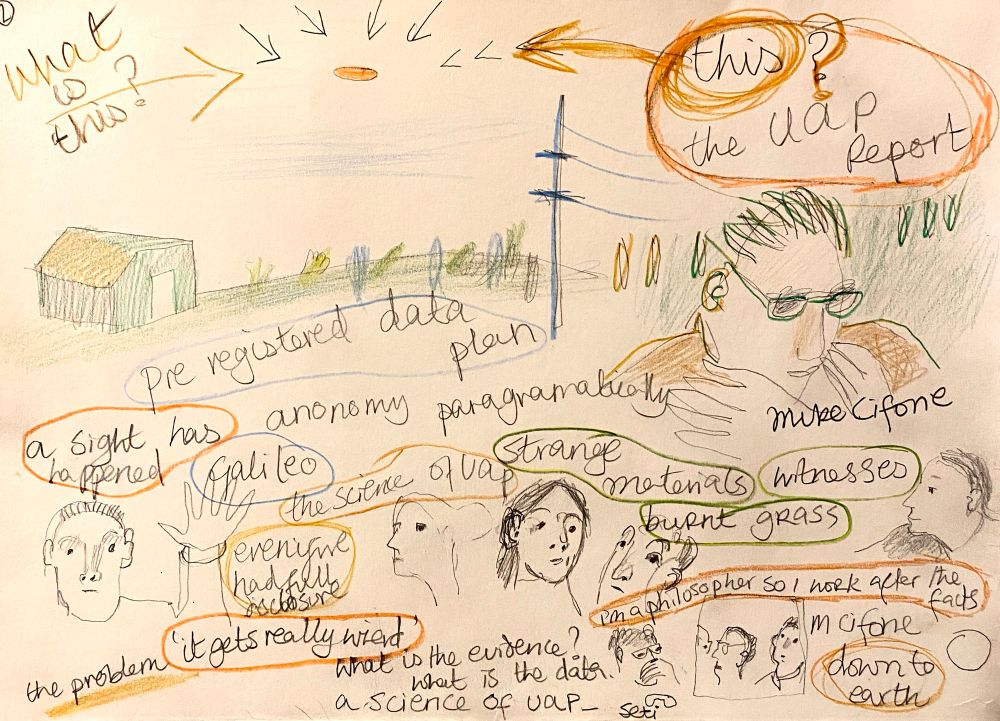 2
what
is
this?
this?
the UAP
Report
pre registered data
plan
anonomy paragramatically
mike Cifone
a sight has
happened
Galileo
the science of UAP
Strange
materials
witnesses
burnt grass
had full
disclosure
I'm a philosopher so I work after the
facts
'it gets really wierd'
the problem
What is the evidence?
what is the data.
a science of UAP_
M Cifone
down to
earth
seti